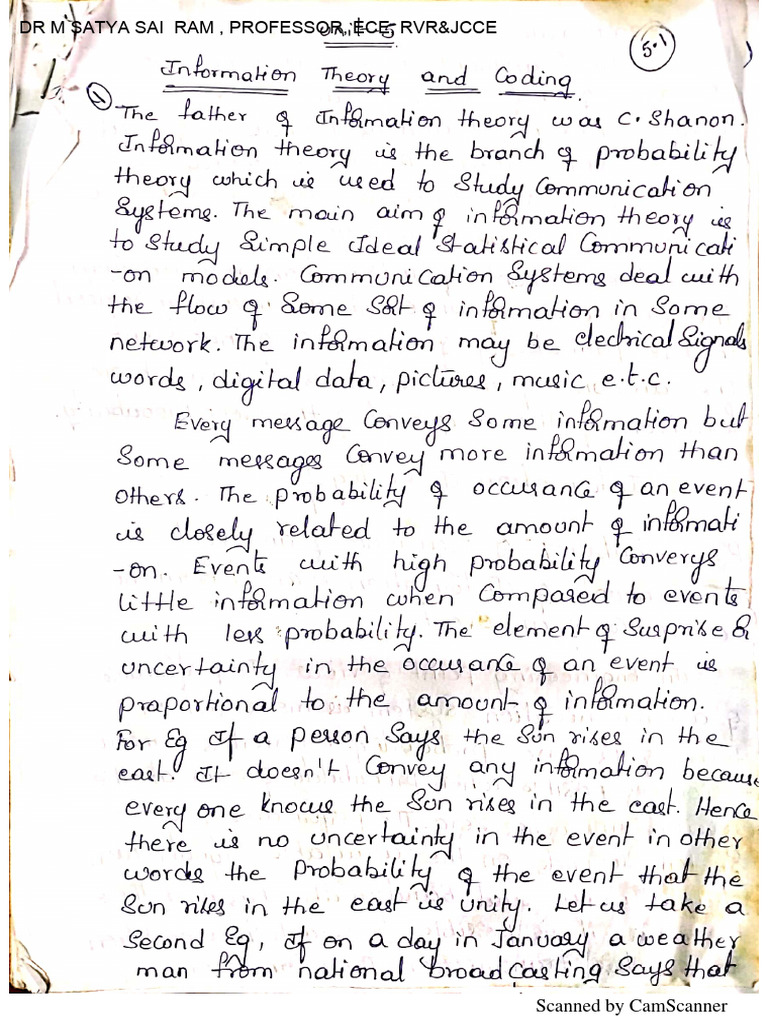 DR M SATYA SAI RAM , PROFESSOR, ECE, RVR&JCCE
5.1
Information Theory and Coding
The father of Information theory was C. Shanon.
Information theory is the branch of probability
theory which is used to Study Communication
Systems. The main aim of information theory is
to Study Simple Ideal Statistical Communicati
-on models. Communication Systems deal with
the flow of Some Sort of information in Some
network. The information may be electrical Signals
words, digital data, pictures, music e.t.c.
Every message Conveys Some information but
Some messages Convey more information than
Others. The probability of occurance of an event
is closely related to the amount of informati
-on. Events with high probability Converys
little information when Compared to events
with less probability. The element of Surprise or
uncertainty in the occurance of an event is
praportional to the amount of information.
For Eg If a person Says the Sun rises in the
east. It doesn't Convey any information because
every one knows the Sun rises in the east. Hence
there is no uncertainty in the event in other
words the Probability of the event that the
Sun rises in the east is unity. Let us take a
Second Eg, If on a day in January a weather
man from national broadcasting Says that
Scanned by CamScanner